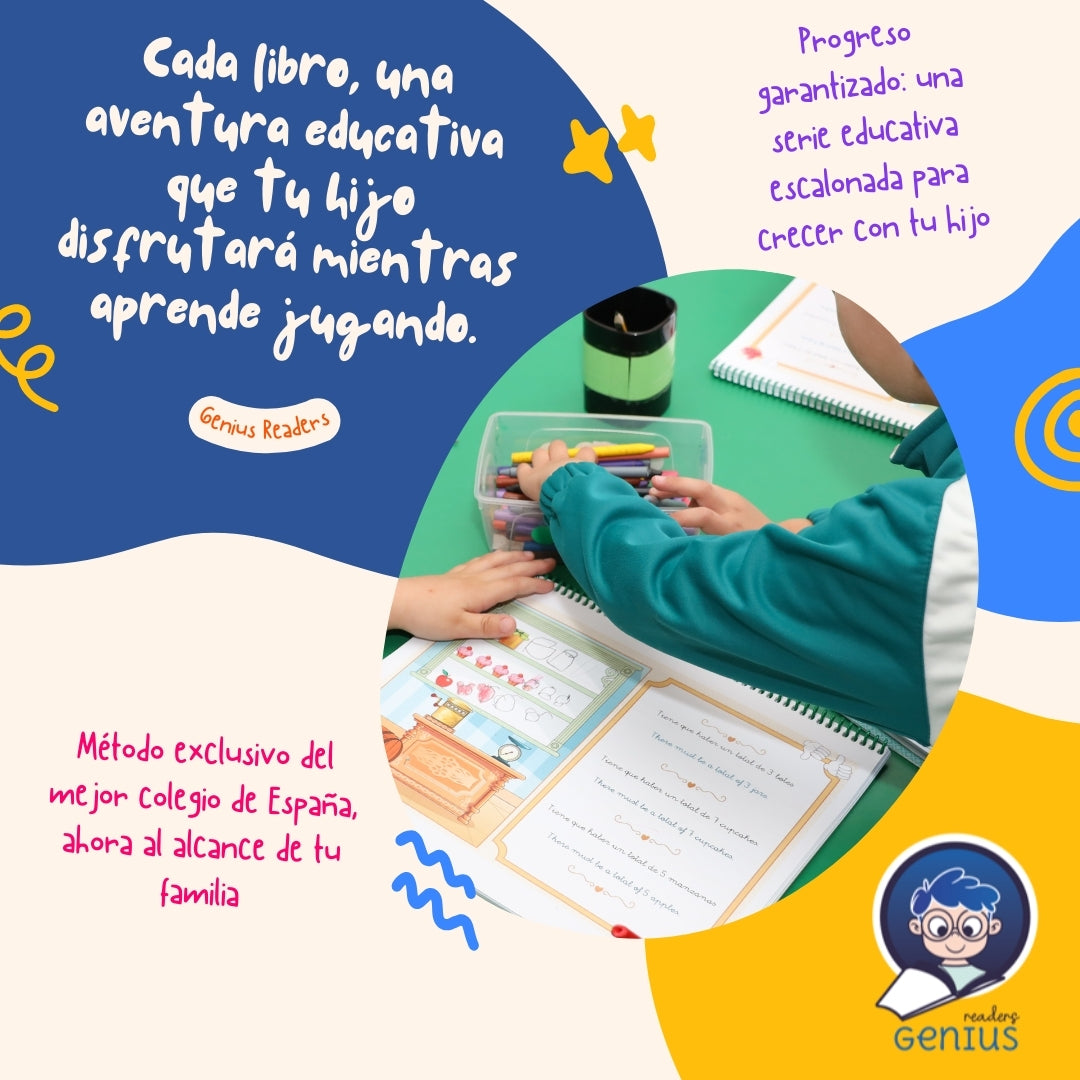 Cada libro, una
aventura educativa
que tu hijo
disfrutará mientras
aprende jugando.
Genius Readers
Progreso
garantizado: una
serie educativa
escalonada para
crecer con tu hijo
Tiene que haber un total de 3 botes
There must be a total of 3
Tiene que haber un total de 7 cupcakes
There must be a total of 7 cupcakes
Tiene que haber un total de 5 manzanas
There must be a total of 5 apples
Método exclusivo del
mejor colegio de España,
ahora al alcance de tu
familia
readers
GENIUS